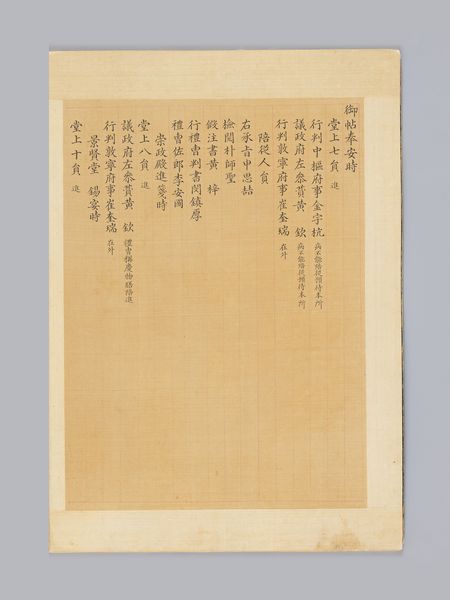 御帖奉安時
堂上七員 進
行判中樞府事金宇杭 病不能陪從預待本所
議政府左叅賛黃 欽 病不能陪從預待本所
行判敦寧府事崔奎瑞 在外
陪從人員
右承旨申思喆
檢閱朴師聖
假注書黃 梓
行禮曹判書閔鎮厚
禮曹佐郎李安國
崇政殿進箋時
堂上八員 進
議政府左叅賛黃 欽
行判敦寧府事崔奎瑞 在外
景賢堂 錫宴時
堂上十員 進